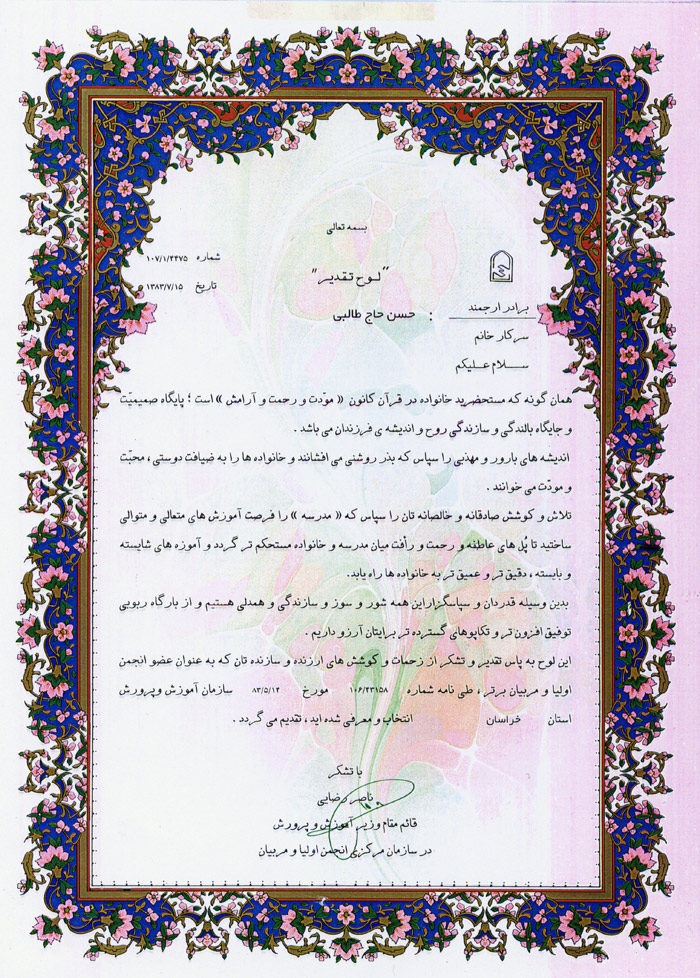 بسمه تعالی
شماره ۱۰۷/۱/۴۴۷۵
"لوح تقدیر"
تاریخ ۱۳۸۳/۷/۱۵
برادر ارجمند : حسن حاج طالبی
سرکار خانم
سـلام علـیکم
همان گونه که مستحضرید خانواده در قرآن کانون « مودّت و رحمت و آرامش » است ؛ پایگاه صمیمیّت
و جایگاه بالندگی و سازندگی روح و اندیشه ی فرزندان می باشد .
اندیشه های بارور و مهذبی را سپاس که بذر روشنی می افشانند و خانواده ها را به ضیافت دوستی ، محبّت
و مودّت می خوانند .
تلاش و کوشش صادقانه و خالصانه تان را سپاس که « مدرسه » را فرصت آموزش های متعالی و متوالی
ساختید تا پُل های عاطفه و رحمت و رأفت میان مدرسه و خانواده مستحکم تر گردد و آموزه های شایسته
و بایسته ، دقیق تر و عمیق تر به خانواده ها راه یابد.
بدین وسیله قدردان و سپاسگزاراین همه شور و سوز و سازندگی و همدلی هستیم و از بارگاه ربوبی
توفیق افزون تر و تکاپوهای گسترده تر برایتان آرزو داریم .
این لوح به پاس تقدیر و تشکر از زحمات و کوشش های ارزنده و سازنده تان که به عنوان عضو انجمن
اولیا و مربیان برتر ، طی نامه شماره ۱۰۶/۲۳۱۵۸ مورخ ۸۳/۵/۱۲ سازمان آموزش وپرورش
استان خراسان انتخاب و معرفی شده اید ، تقدیم می گردد .
با تشکر
ناصر رضایی
قائم مقام وزیر آموزش و پرورش
در سازمان مرکزی انجمن اولیا و مربیان